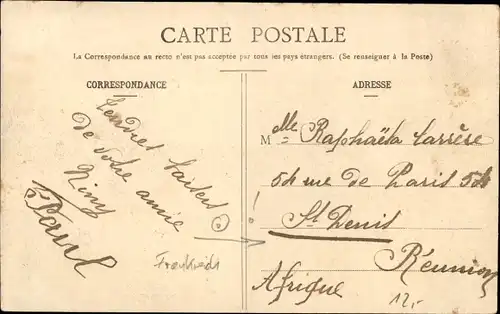 CARTE POSTALE
La Correspondance au recto n'est pas acceptée par tous les pays étrangers. (Se renseigner à la Poste)
CORRESPONDANCE
Tendres baisers
de votre amie
Niny
Paul
Frankreich
ADRESSE
Melle Raphaëla Carrère
54 rue de Paris 54
St Denis
Réunion
Afrique
12,-